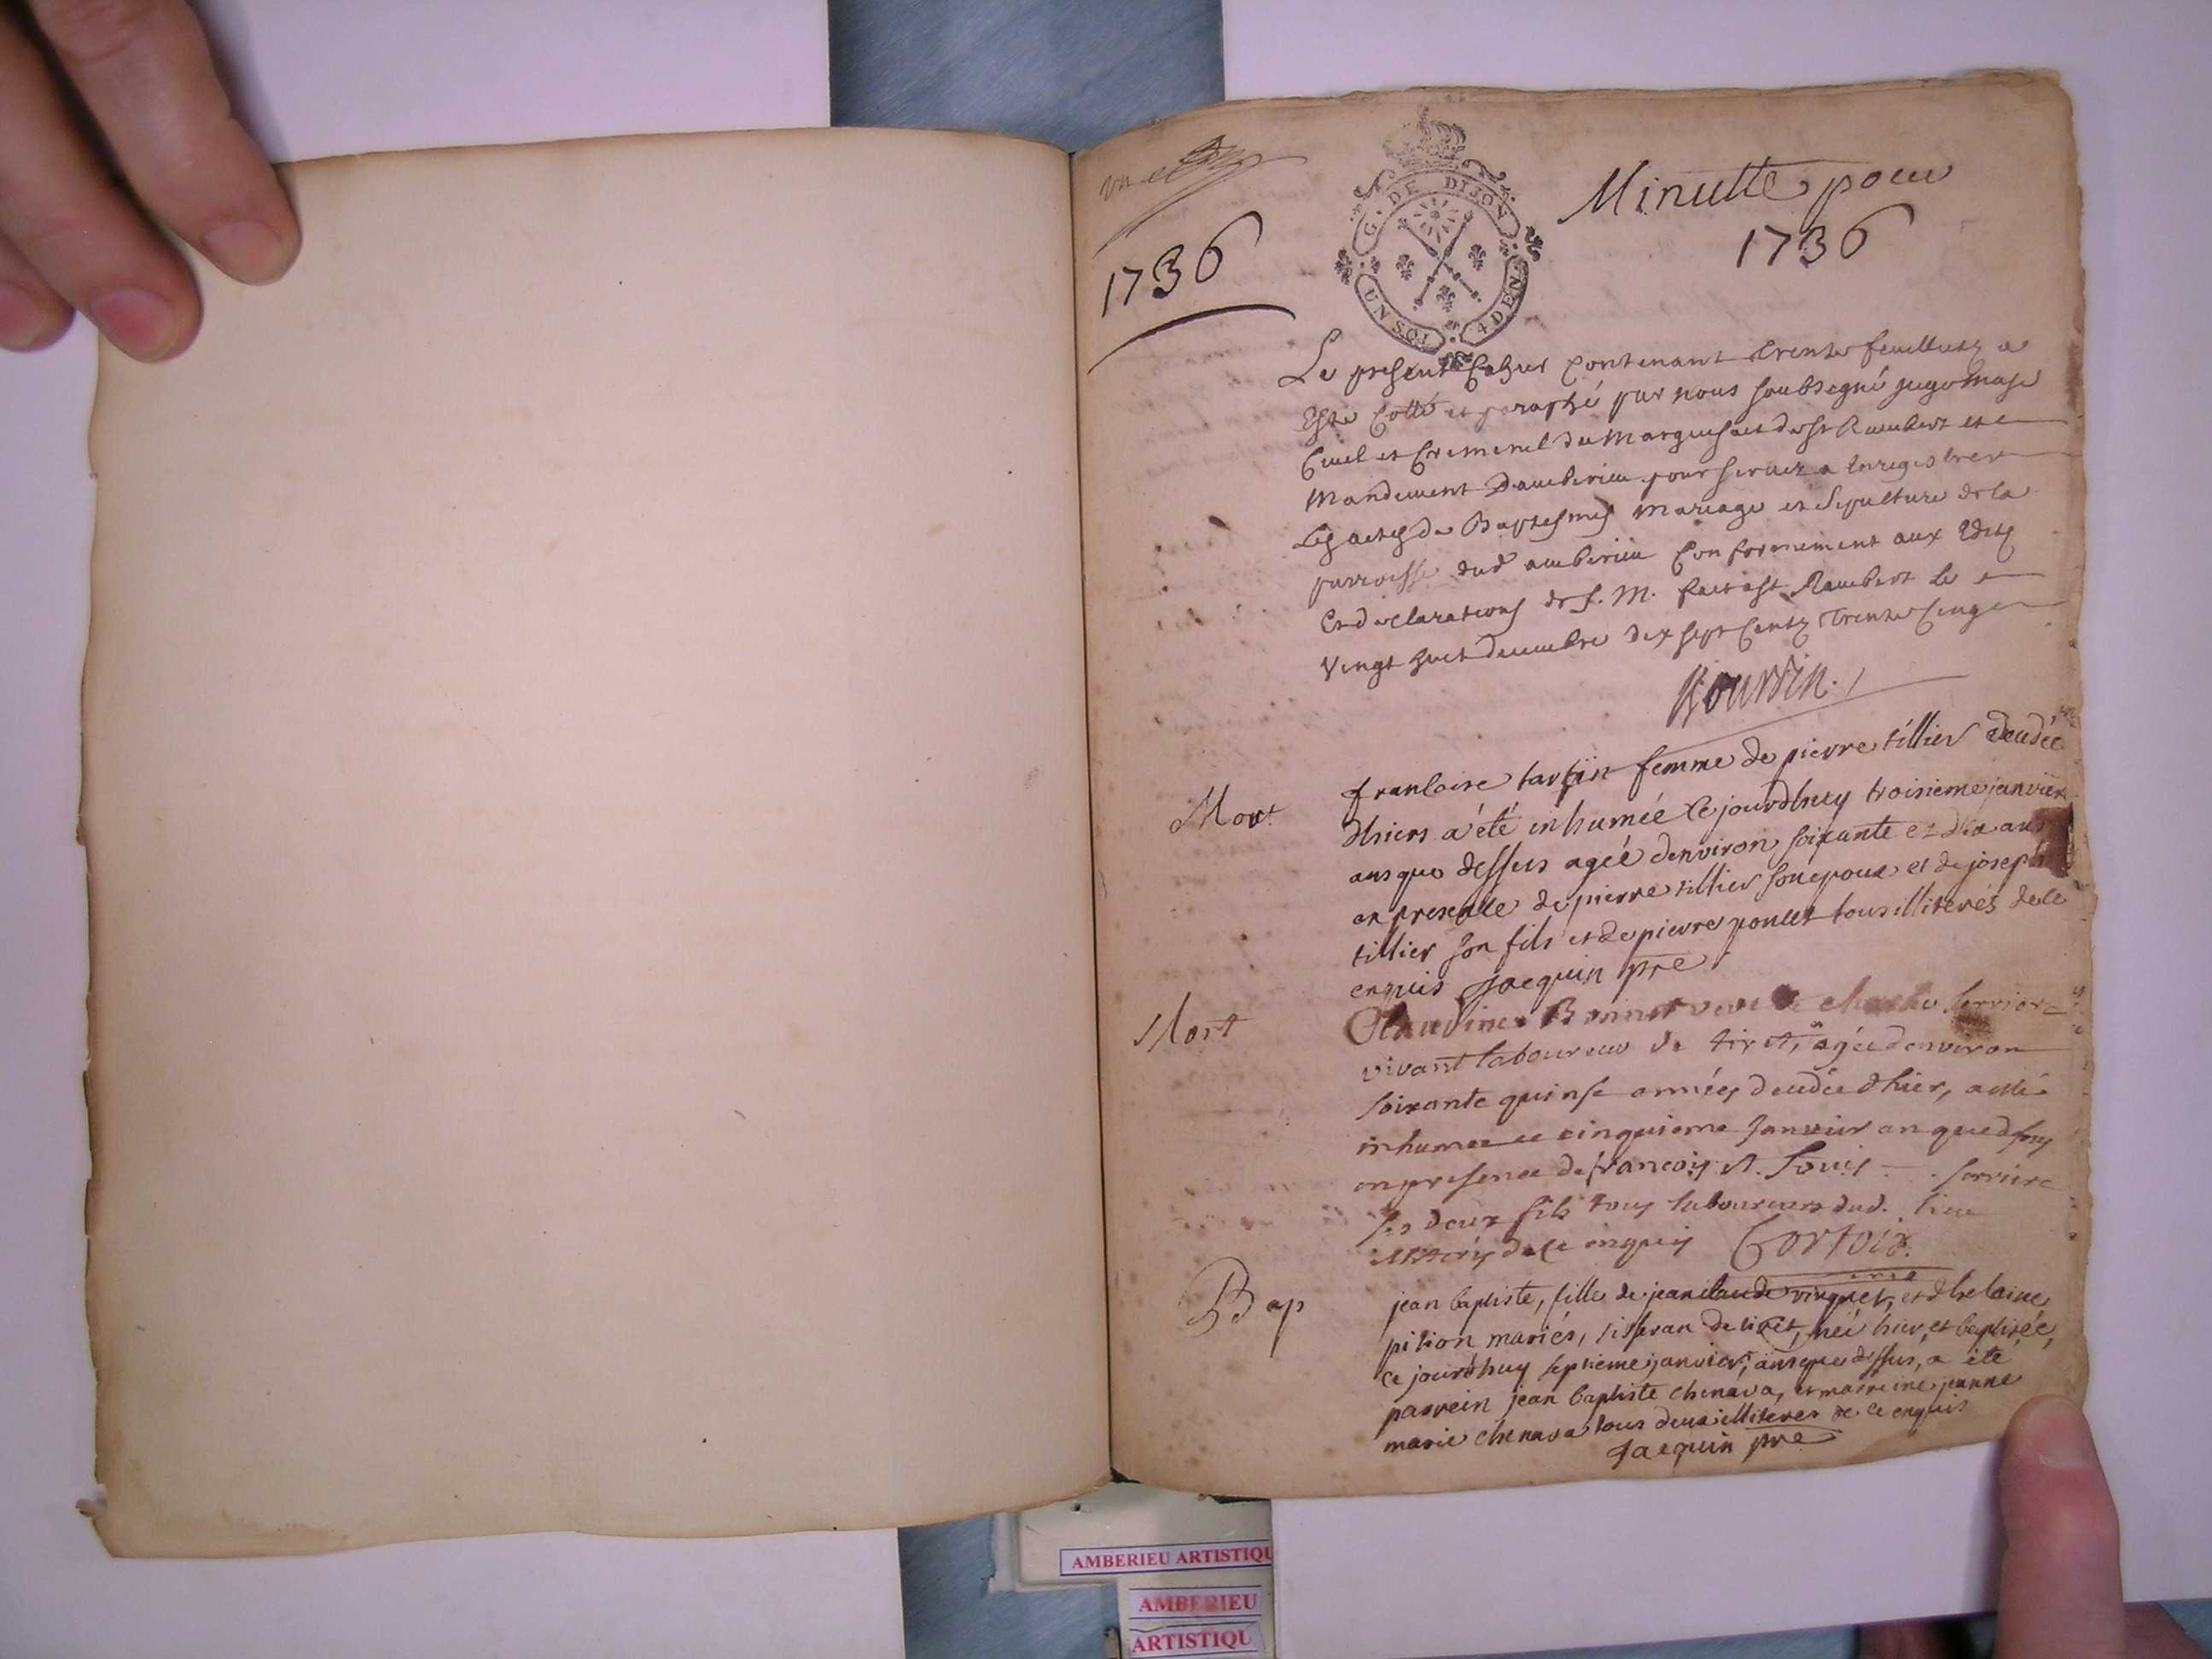 1736
G. DE DIJON
UN SOL 4 DEN.
Minutte pour
1736
Le present Cahier Contenant trente feuilletz a
Esté Cotté et paraphé par nous soubsegné juge maje
Civil et Criminel du Marquisat de St Rambert et
Mandement Dambérieu pour servir a Enregistrer
Les actes de Baptesmes Mariage et Sepulture de la
parroisse dud amberieu Conformement aux Edits
Et declarations de S. M. fait a St Rambert le
Vingt huit decembre dix sept Centz Trente Cinq
Mort
francoise femme de pierre tillier decedée
dhiers a été inhumée ce jourdhuy troisieme janvier
ans que dessus agée denviron soixante et dix ans
en presence de pierre tillier son epoux et de joseph
tillier son fils et de pierre poncet tous illiterés de ce
enquis Jacquin pre
Mort
Claudine Bonnet
vivant laboureur de tiret, agée denviron
soixante quinse années decedée dhier, a esté
inhumee ce cinquieme Janvier an que dessus
en presence de francois et Louis
ses deux fils tous laboureurs dud. lieu
illiterés de ce enquis
Bap
jean baptiste, fille de jean claude vinquet, et dhelaine
pition mariés, tisseran de tiret, née hier, et baptisée,
ce jourdhuy septieme janvier, ans que dessus, a été
parrein jean baptiste chenava, et marreine jeanne
marie chenava tous deux illiteres de ce enquis
Jacquin pre
AMBERIEU ARTISTIQU
AMBERIEU
ARTISTIQU